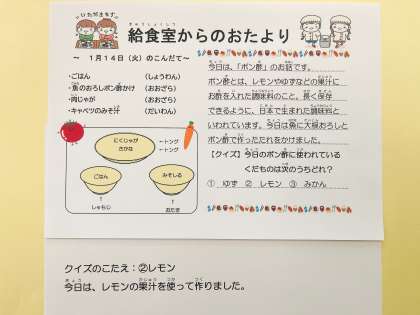 いただきます!!
給食室からのおたより
~ 1月14日(火)のこんだて~
・ごはん (しょうわん)
・魚のおろしポン酢かけ (おおざら)
・肉じゃが (おおざら)
・キャベツのみそ汁 (だいわん)
にくじゃが
さかな
←トング
←トング
ごはん
みそしる
↑
しゃもじ
↑
おたま
今日は、「ポン酢」のお話です。
ポン酢とは、レモンやゆずなどの果汁に
お酢を入れた調味料のこと。長く保存
できるように、日本で生まれた調味料と
いわれています。今日は魚に大根おろしと
ポン酢で作ったたれをかけました。
【クイズ】今日のポン酢に使われている
くだものは次のうちどれ?
① ゆず ② レモン ③ みかん
クイズのこたえ:②レモン
今日は、レモンの果汁を使って作りました。